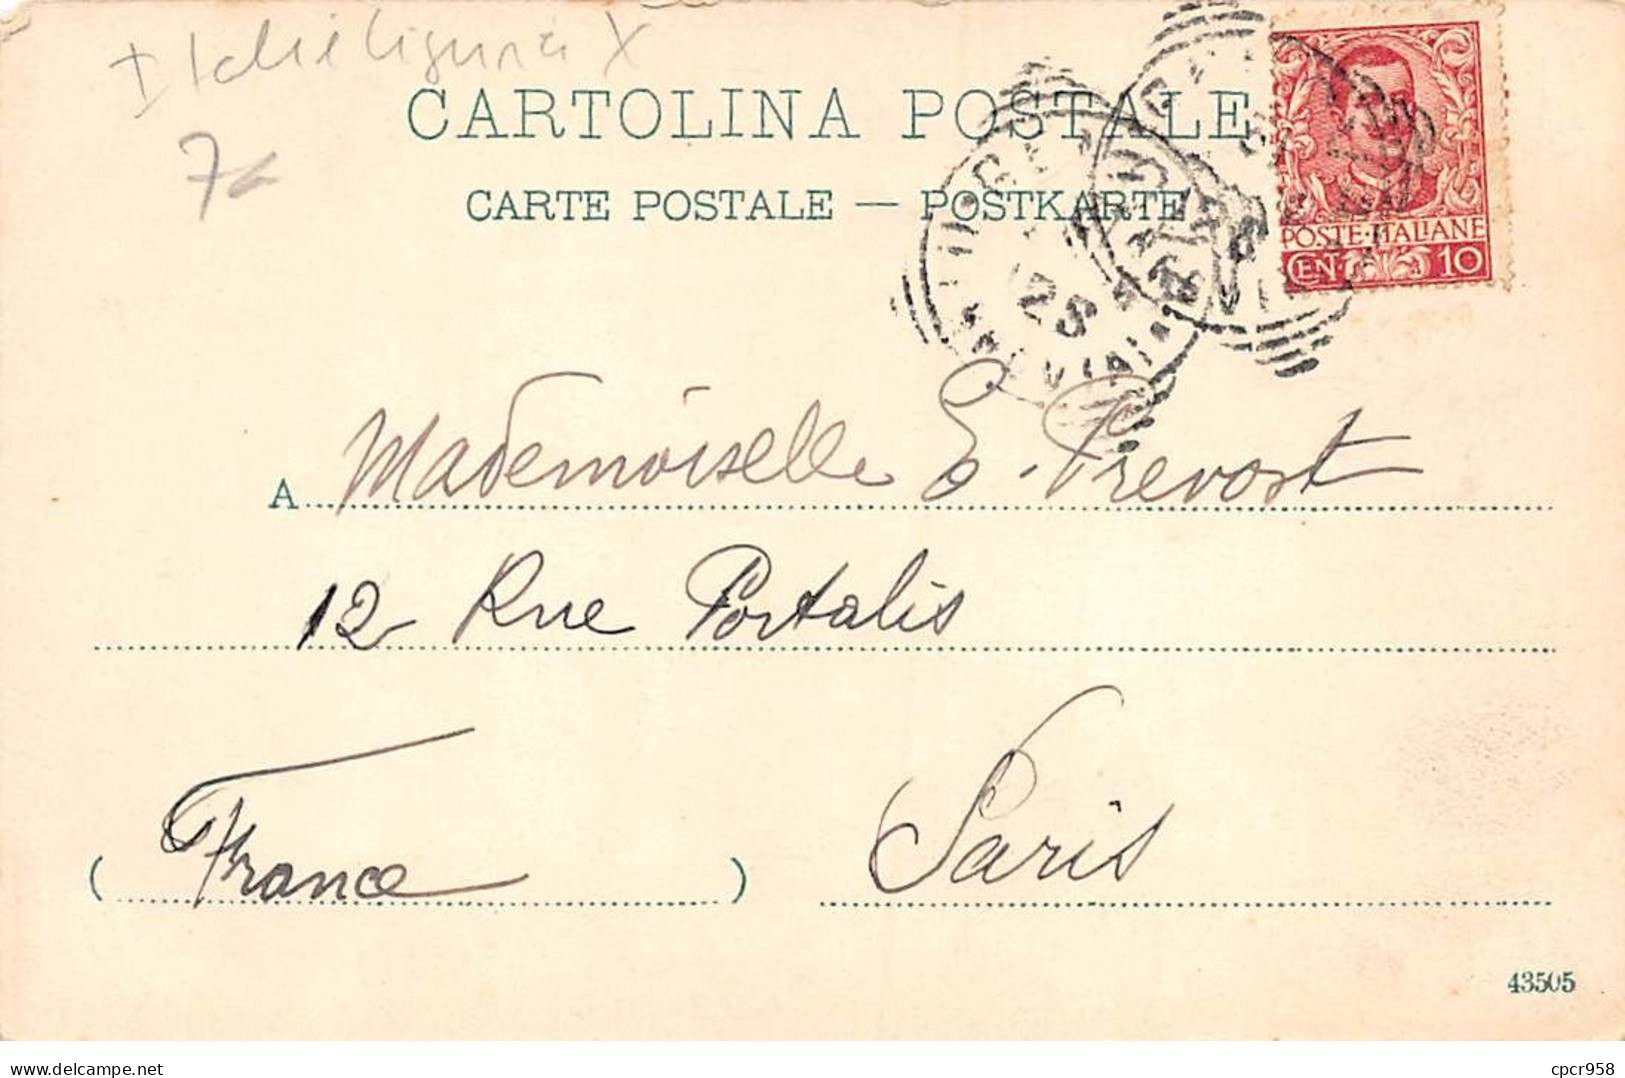 Italie Liguria X
CARTOLINA POSTALE
CARTE POSTALE — POSTKARTE
POSTE·ITALIANE
CEN. 10
A Mademoiselle E. Prevost
12 Rue Portalis
Paris
( France )
43505
delcampe.net
cpcr958